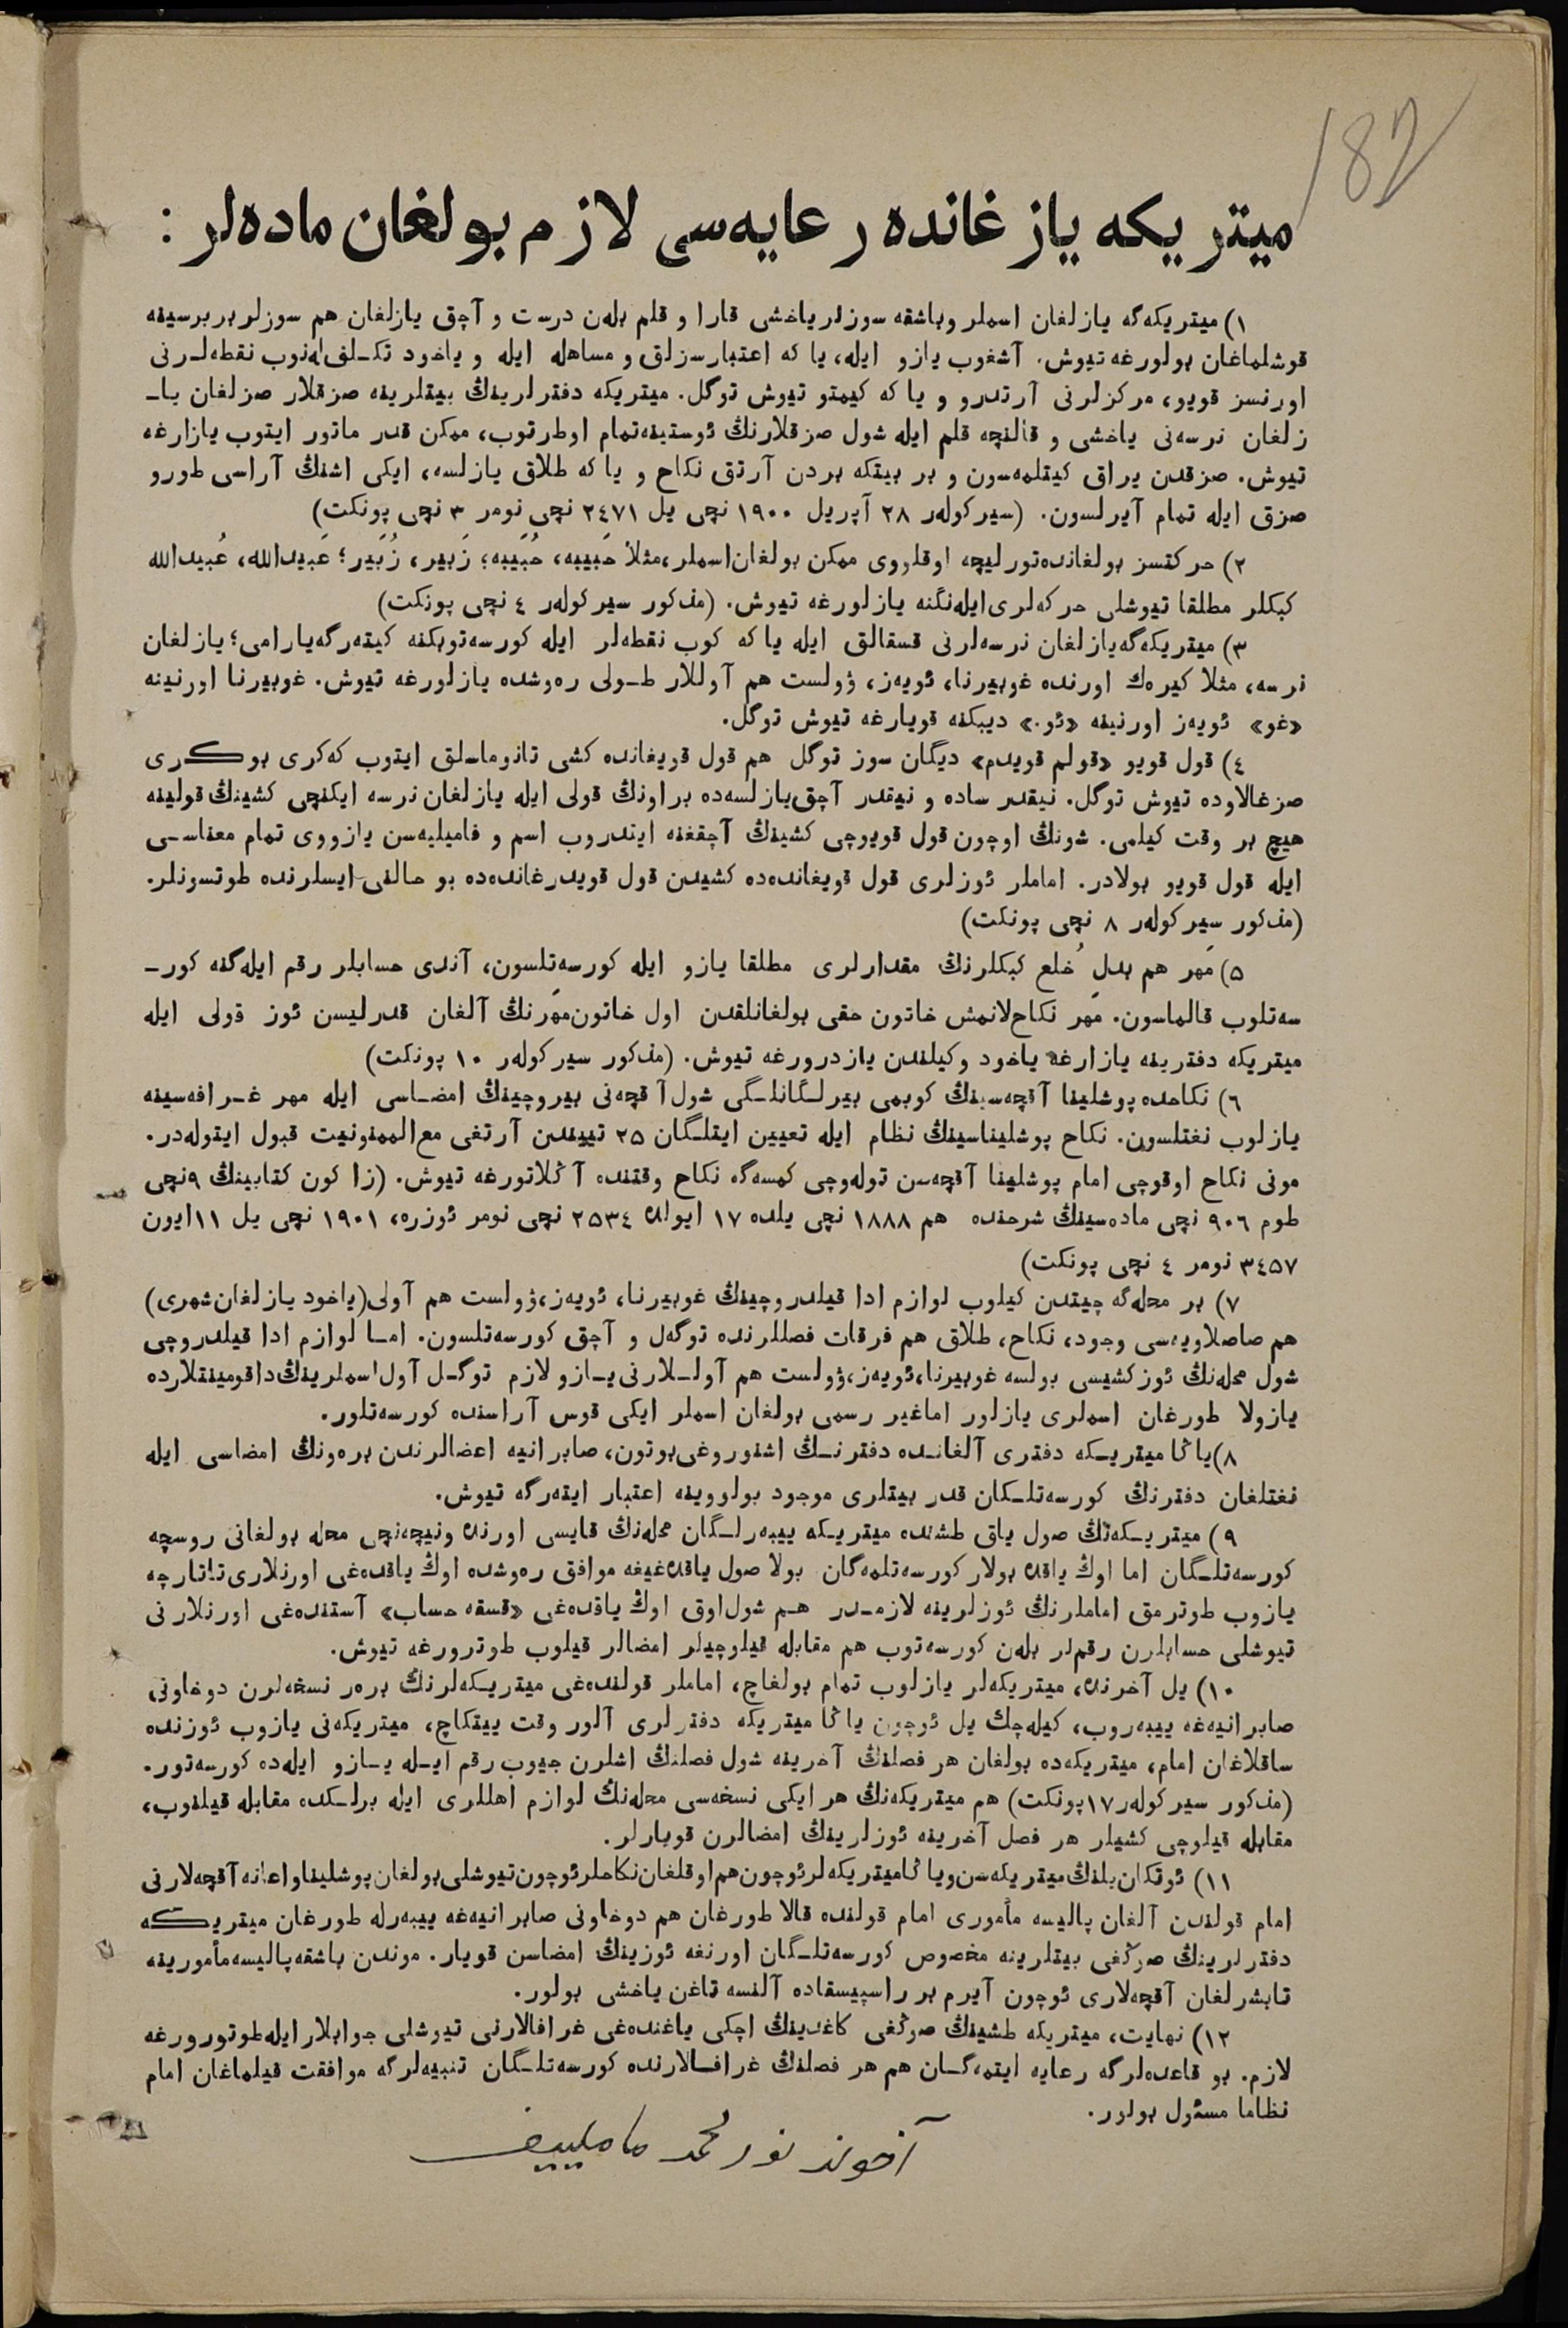 182
میتریکه یازغانده رعایه‌سی لازم بولغان ماده‌لر :
١) میتریکه‌گه یازلغان اسملر وباشقه سوزلر یاخشی قارا و قلم بله‌ن درست و آچق یازلغان هم سوزلر بربرسینه
قوشلماغان بولورغه تیوش. آشغوب یازو ایله، یا که اعتبارسزلق و مساهله ایله و یاخود تکـلف له‌نوب نقطه‌لـرنی
اورنسز قویو، مرکزلرنی آرتدرو و یا که کیمتو تیوش توگل. میتریکه دفترلرینڭ بیتلرینه صزقلار صزلغان یا‌ـ
زلغان نرسه‌نی یاخشی و قالنچه قلم ایله شول صزقلارنڭ ئوستینه‌تمام اوطرتوب، ممکن قدر ماتور ایتوب یازارغه
تیوش. صزقدن یراق کیتلمه‌سون و بر بیتکه بردن آرتق نکاح و یا که طلاق یازلسه، ایکی اشنڭ آراسی طورو
صزق ایله تمام آیرلسون. (سیرکوله‌ر ٢٨ آپریل ١٩٠٠ نچی یل ٢٤٧١ نچی نومر ٣ نچی پونکت)
٢) حرکتسز بولغانده‌تورلیچه اوقلووی ممکن بولغان‌اسملر،مثلا حَبیبه، حُبَیبه؛ زَبیر، زُبَیر؛ عَبیدالله، عُبیدالله
کبکلر مطلقا تیوشلی حرکه‌لری‌ایله‌نگنه یازلورغه تیوش. (مذکور سیرکوله‌ر ٤ نچی پونکت)
٣) میتریکه‌گه‌یازلغان نرسه‌لرنی قسقالق ایله یا که کوب نقطه‌لر ایله کورسه‌توبکنه کیته‌رگه‌یارامی؛ یازلغان
نرسه، مثلا کیره‌ك اورنده غوبیرنا، ئویه‌ز، ۋولست هم آوللار طـولی ره‌وشده یازلورغه تیوش. غوبیرنا اورنینه
«غو» ئویه‌ز اورنینه «ئو.» دیبکنه قویارغه تیوش توگل.
٤) قول قویو «قولم قویدم» دیگان سوز توگل هم قول قویغانده کشی تانوماسلق ایتوب که‌کری بوکری
صزغالاوده تیوش توگل. نیقدر ساده و نیقدر آچق‌یازلسه‌ده براونڭ قولی ایله یازلغان نرسه ایکنچی کشینڭ قولینه
هیچ بر وقت کیلمی. شونڭ اوچون قول قویوچی کشینڭ آچقغنه ایندروب اسم و فامیلیه‌سن یازووی تمام معناسـی
ایله قول قویو بولادر. اماملر ئوزلری قول قویغانده‌ده کشیدن قول قویدرغانده‌ده بو حالنی ایسلرنده طوتسونلر.
(مذکور سیرکوله‌ر ٨ نچی پونکت)
٥) مَهر هم بدلِ خُلع کبکلرنڭ مقدارلری مطلقا یازو ایله کورسه‌تلسون، آندی حسابلر رقم ایله‌گنه کور‌ـ
سه‌تلوب قالماسون. مَهر نکاح‌لانمش خاتون حقی بولغانلقدن اول خاتون‌مهرنڭ آلغان قدرلیسن ئوز قولی ایله
میتریکه دفترینه یازارغه یاخود وکیلندن یازدرورغه تیوش. (مذکور سیرکوله‌ر ١٠ پونکت)
٦) نکاحده پوشلینا آقچه‌سینڭ کوبمی بیرلـگانلـگی شول آقچه‌نی بیروچینڭ امضـاسی ایله مهر غـرافه‌سینه
یازلوب نغتلسون. نکاح پوشلیناسینڭ نظام ایله تعیین ایتلـگان ٢٥ تییندن آرتغی مع‌الممنونیت قبول ایتوله‌در.
مونی نکاح اوقوچی امام پوشلینا آقچه‌سن توله‌وچی کمسه‌گه نکاح وقتنده آڭلاتورغه تیوش. (زاکون کتابینڭ ٩نچی
طوم ٩٠٦ نچی ماده‌سینڭ شرحنده هم ١٨٨٨ نچی یلده ١٧ ایولده ٢٥٣٤ نچی نومر ئوزره، ١٩٠١ نچی یل ١١ایون
٣٤٥٧ نومر ٤ نچی پونکت)
٧) بر محله‌گه چیتدن کیلوب لوازم ادا قیلدروچینڭ غوبیرنا، ئویه‌ز،ۋولست هم آولی(یاخود یازلغان‌شهری)
هم صاصلاویه‌سی وجود، نکاح، طلاق هم فرقات فصللرنده توگه‌ل و آچق کورسه‌تلسون. امـا لوازم ادا قیلدروچی
شول محله‌نڭ ئوز کشیسی بولسه غوبیرنا،ئویه‌ز،ۋولست هم آولـلارنی یـازو لازم توگـل آول اسملرینڭ‌داقومینتلارده
یازولا طورغان اسملری یازلور اماغیر رسمی بولغان اسملر ایکی قوس آراسنده کورسه‌تلور.
٨)یاڭا میتریـکه دفتری آلغانـده دفترنـڭ اشنوروغی‌بوتون، صابرانیه اعضالرندن بره‌ونڭ امضاسی ایله
نغتلغان دفترنڭ کورسه‌تلـکان قدر بیتلری موجود بولووینه اعتبار ایته‌رگه تیوش.
٩) میتریـکه‌نڭ صول یاق طشنده میتریـکه ییبه‌رلـگان محله‌نڭ قایسی اورنده ونیچه‌نچی محله بولغانی روسچه
کورسه‌تلـگان اما اوڭ یاقده بولار کورسه‌تلمه‌گان بولا صول یاقده‌غیغه موافق ره‌وشده اوڭ یاقده‌غی اورنلاری‌تاتارچه
یازوب طوترمق اماملرنڭ ئوزلرینه لازمـدر هـم شول‌اوق اوڭ یاقده‌غی «قسقه حساب» آستنده‌غی اورنلارنی
تیوشلی حسابلرن رقملر بله‌ن کورسه‌توب هم مقابله قیلوچیلر امضالر قیلوب طوترورغه تیوش.
١٠) یل آخرنده، میتریکه‌لر یازلوب تمام بولغاچ، اماملر قولنده‌غی میتریـکه‌لرنڭ بره‌ر نسخه‌لرن دوخاونی
صابرانیه‌غه ییبه‌روب، کیله‌چك یل ئوچون یاڭا میتریکه دفترلری آلور وقت ییتکاچ، میتریکه‌نی یازوب ئوزنده
ساقلاغان امام، میتریکه‌ده بولغان هر فصلنڭ آخرینه شول فصلنڭ اشلرن جیوب رقم ایـله یـازو ایله‌ده کورسه‌تور.
(مذکور سیرکوله‌ر ١٧پونکت) هم میتریکه‌نڭ هر ایکی نسخه‌سی محله‌نڭ لوازم اهللری ایله برلـکده مقابله قیلنوب،
مقابله قیلوچی کشیلر هر فصل آخرینه ئوزلرینڭ امضالرن قویارلر.
١١) ئوتکان‌یلنڭ‌میتریکه‌سن‌ویاڭامیتریکه‌لرئوچون‌هم‌اوقلغان‌نکاحلرئوچون‌تیوشلی‌بولغان‌پوشلیناواعانه‌آقچه‌لارنی
امام قولندن آلغان پالیسه مأموری امام قولنده قالا طورغان هم دوخاونی صابرانیه‌غه ییبه‌رله طورغان میتریـکه
دفترلرینڭ صوڭغی بیتلرینه مخصوص کورسه‌تلـگان اورنغه ئوزینڭ امضاسن قویار. موندن باشقه‌پالیسه‌مأمورینه
تابشرلغان آقچه‌لاری ئوچون آیرم بر راسپیسقاده آلنسه تاغن یاخشی بولور.
١٢) نهایت، میتریکه طشینڭ صوڭغی کاغدینڭ اچکی یاغنده‌غی غرافالارنی تیوشلی جوابلار ایله‌طوتورورغه
لازم. بو قاعده‌لرگه رعایه ایتمه‌گـان هم هر فصلنڭ غرافـالارنده کورسه‌تلـگان تنبیه‌لرگه موافقت قیلماغان امام
نظاما مسئول بولور.
آخوند نورمحمد ماملییف